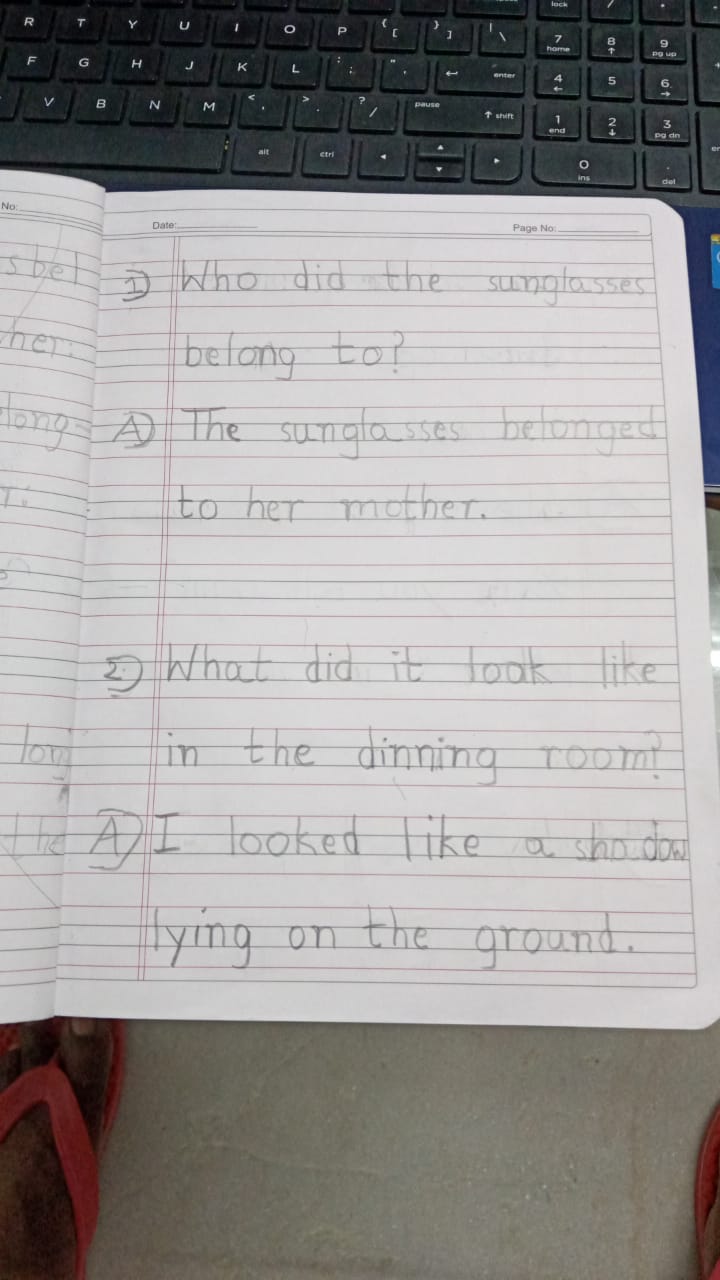 lock
R T Y U I O P { [ } ] | \ 7 home 8 ↑ 9 pg up
F G H J K L : ; " ' ← enter 4 ← 5 6 →
V B N M < , > . ? / pause ↑ shift 1 end 2 ↓ 3 pg dn
alt ctrl ◄ ▲ ▼ ► 0 ins . del
No:
Date: Page No:
s bel
her.
long
r.
long
the
1) Who did the sunglasses
belong to?
A) The sunglasses belonged
to her mother.
2) What did it look like
in the dinning room?
A) I looked like a shadow
lying on the ground.